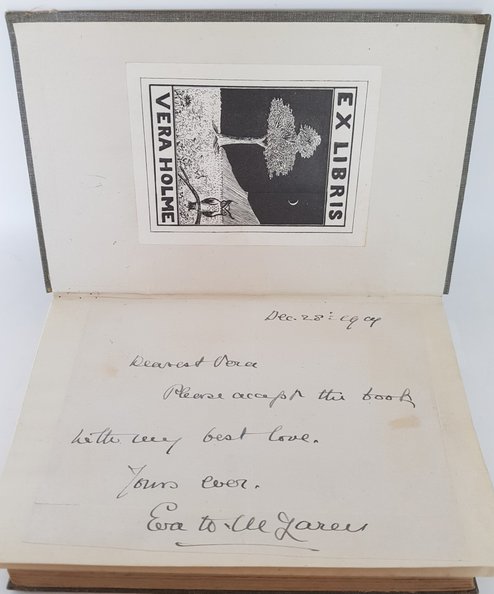 EX LIBRIS
VERA HOLME
Dec. 28: 1919
Dearest Vera
Please accept this book
with my best love.
Yours ever.
Eva S. McLaren